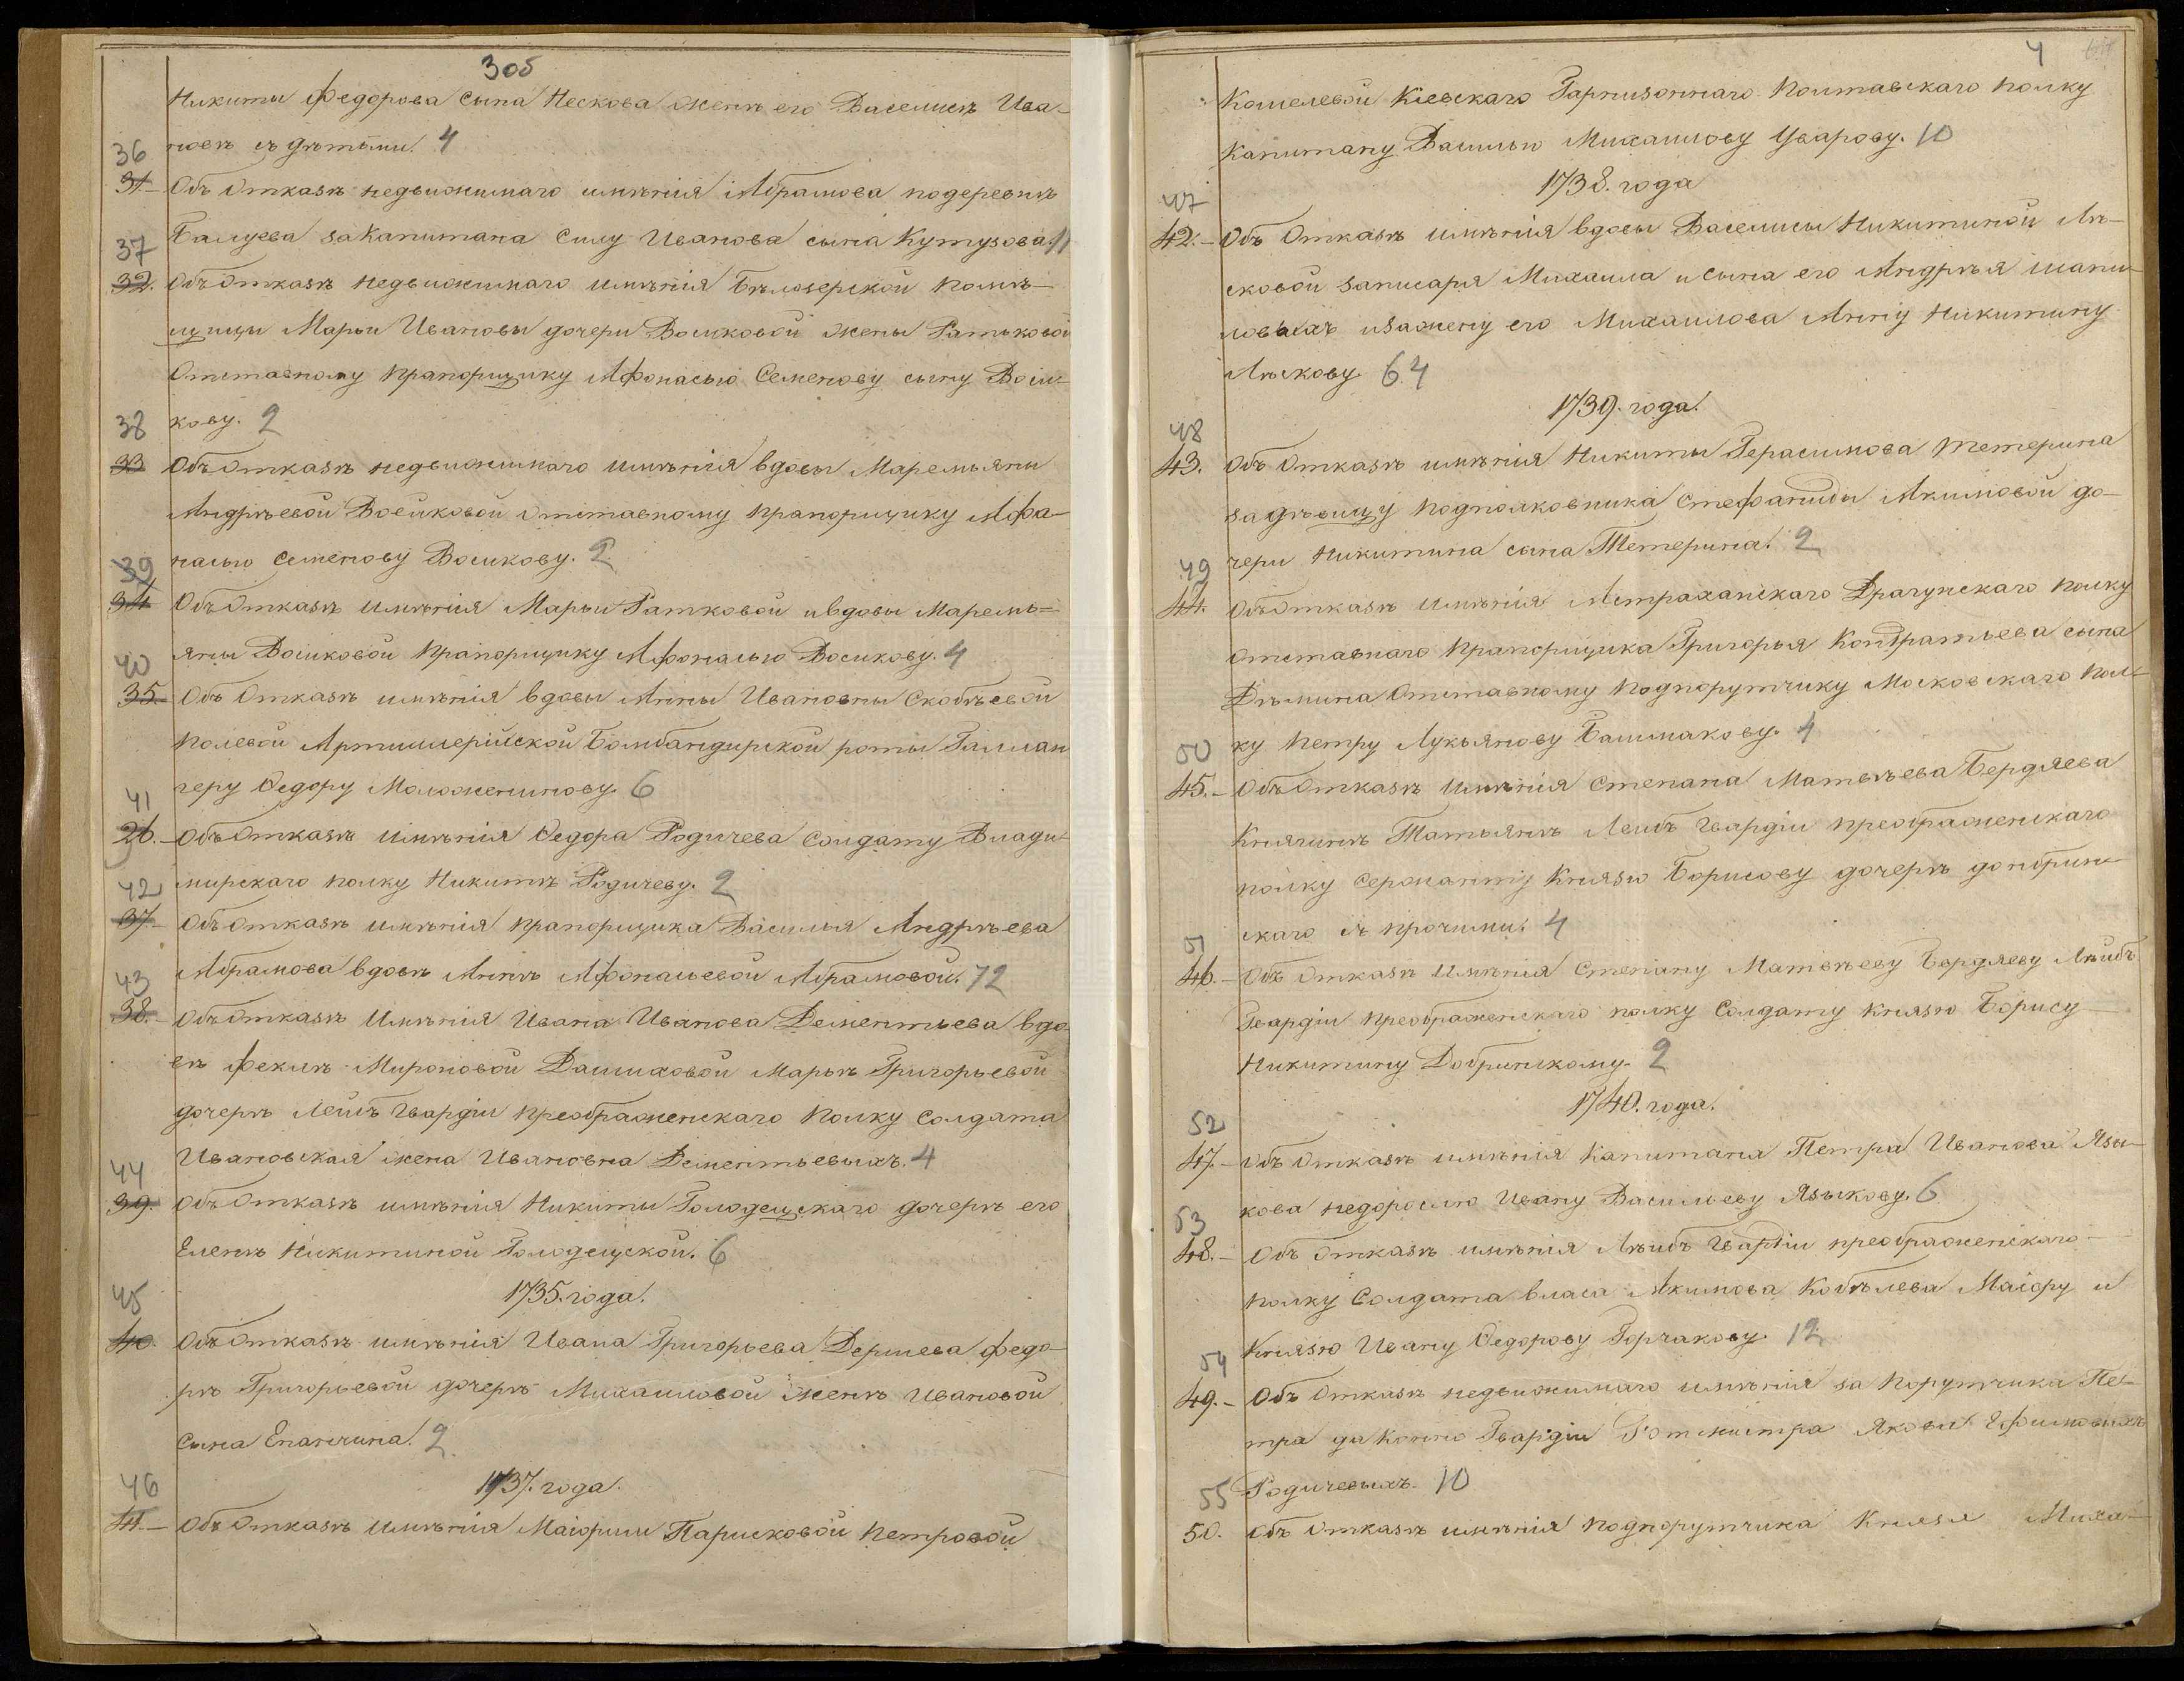 3об
Никиты Федорова сына Нескова женѣ его Василисѣ Ива-
36 новѣ съ дѣтьми. 4
31. Объ отказѣ недвижимаго имѣнія Абрамова подеревнѣ
37 Балуева за Капитана Силу Иванова сына Кутузова. 11
32. Объ отказѣ недвижимаго имѣнія Бѣлозерской помѣ-
щицы Марьи Ивановы дочери Воейковой жены Ратьковой
Отставному прапорщику Афонасью Семенову сыну Воей-
38 кову. 2
33 Объ отказѣ недвижимаго имѣнія вдовы Маремьяны
Андрѣевой Воейковой отставному прапорщику Афа-
39 насью Семенову Воейкову. 2
34 Объ отказѣ имѣнія Марьи Ратковой и вдовы Маремь-
40 яны Воейковой прапорщику Афонасью Воейкову. 4
35. Объ отказѣ имѣнія вдовы Анны Ивановны Скобѣевой
полевой Артиллерійской Бомбандирской роты Галлан
41 геру Ѳедору Моложенинову. 6
26. Объ отказѣ имѣнія Ѳедора Родичева солдату Влади-
42 мирскаго полку Никитѣ Родичеву. 2
37. Объ отказѣ имѣнія прапорщика Василья Андрѣева
43 Абрамова вдовѣ Аннѣ Афонасьевой Абрамовой. 12
38. Объ отказѣ имѣнія Ивана Иванова Дементьева вдо-
вѣ Феклѣ Мироновой Марьѣ Григорьевой
дочерѣ Лейбъ Гвардіи преображенскаго полку солдата
44 Ивановская жена Ивановна Дементьевыхъ. 4
39. Объ отказѣ имѣнія Никиты Голодецскаго дочерѣ его
Еленѣ Никитиной Голодецской. 6
45 1735. года.
40. Объ отказѣ имѣнія Ивана Григорьева Дершева федо-
рѣ Григорьевой дочерѣ Михаиловой женѣ Ивановой
сына Епанчина. 2
46 1737. года.
41. Объ отказѣ имѣнія Маіорши Парисковой Петровой
4
Кошелевой Кіевскаго Гарнизоннаго Полтавскаго полку
Капитану Василью Михаилову Уварову. 10
47 1738. года
42. Объ отказѣ имѣнія вдовы Василисы Никитиной Лѣ-
сковой за писаря Михаила и сына его Андрѣя
ловыхъ и за жену его Михаилова Анну Никитину
Лѣскову 6.4
48 1739. года.
43. Объ отказѣ имѣнія Никиты Герасимова Тетерина
за дѣвицу подполковника Стефаниды Акимовой до-
49 чери Никитина сына Тетерина. 2
44. Объ отказѣ имѣнія Астраханскаго Драгунскаго полку
отставнаго прапорщика Григорья Кондратьева сына
Дѣмина Отставному подпорутчику Московскаго пол-
50 ку Петру Лукьянову Башмакову. 4
45. Объ отказѣ имѣнія Степана Матвѣева Бердяева
Княгинѣ Татьянѣ Лейбъ Гвардіи преображенскаго
полку сержанту Князю Борисову дочерѣ добрин-
51 скаго съ прочими. 4
46. Объ отказѣ имѣнія Степану Матвѣеву Бердяеву Лейбъ
Гвардіи преображенскаго полку солдату князю Борису
Никитину Добринскому. 2
52 1740. года.
47. Объ отказѣ имѣнія Капитана Петра Иванова Язы-
53 кова недорослю Ивану Васильеву Языкову. 6
48. Объ отказѣ имѣнія Лѣибъ Гвардіи преображенскаго
полку солдата Власа Акимова Кобылева Маіору и
54 Князю Ивану Ѳедорову Горчакову. 12
49. Объ отказѣ недвижимаго имѣнія за Порутчика Пе-
тра да Конно Гвардіи Ротмистра Якова Ефимовыхъ
55 Родичевыхъ. 10
50. Объ отказѣ имѣнія подпорутчика Князя Миха-